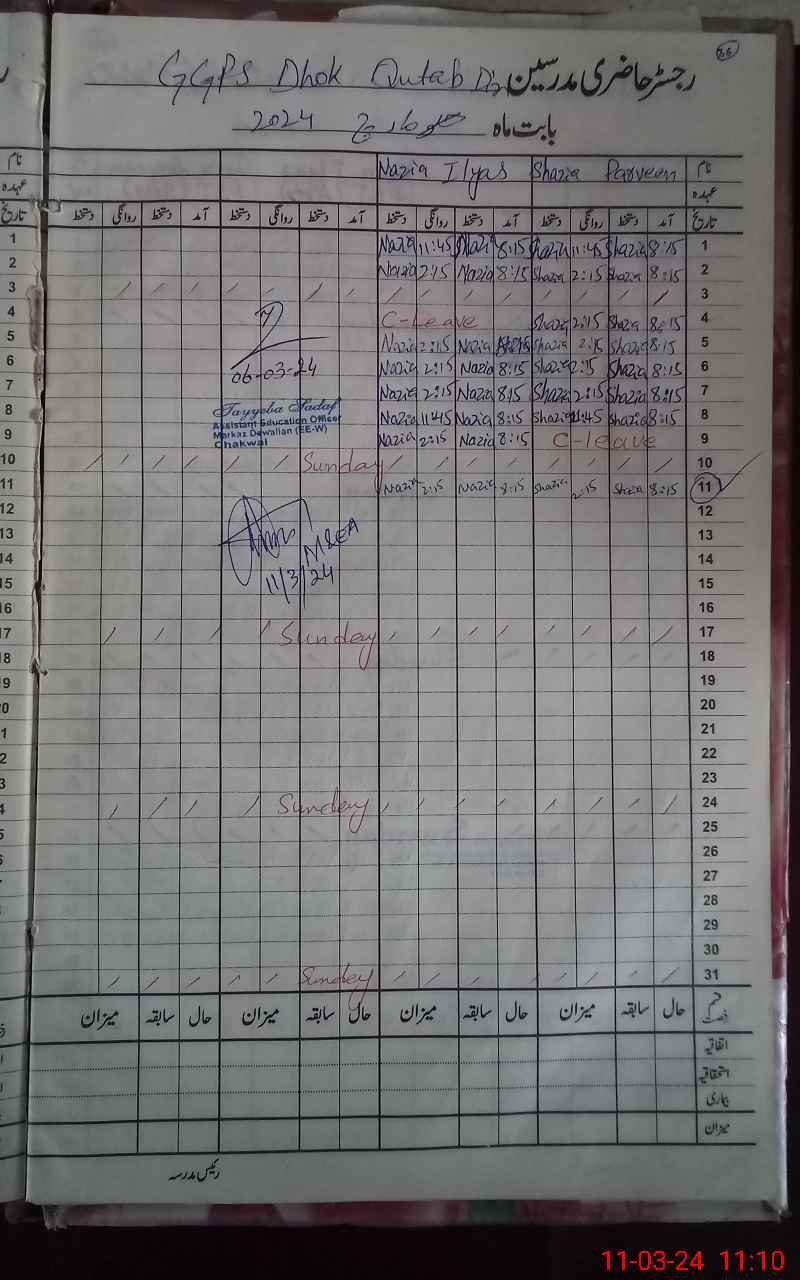 26
رجسٹر حاضری مدرسین GGPS Dhok Qutab Din
بابت ماہ مارچ 2024
نام Shazia Parveen Nazia Ilyas نام
عہدہ عہدہ
تاریخ آمد دستخط روانگی دستخط آمد دستخط روانگی دستخط آمد دستخط روانگی دستخط آمد دستخط روانگی دستخط تاریخ
1 Nazia 11:45 Nazia 8:15 Shazia 11:45 Shazia 8:15 1
2 Nazia 2:15 Nazia 8:15 Shazia 2:15 Shazia 8:15 2
3 3
4 C-Leave Shazia 2:15 Shazia 8:15 4
5 Nazia 2:15 Nazia 8:15 Shazia 2:15 Shazia 8:15 5
6 06-03-24 Nazia 2:15 Nazia 8:15 Shazia 2:15 Shazia 8:15 6
7 Nazia 2:15 Nazia 8:15 Shazia 2:15 Shazia 8:15 7
Tayyeba Sadaf
Assistant Education Officer
Markaz Dewalian (EE-W)
Chakwal
8 Nazia 11:45 Nazia 8:15 Shazia 11:45 Shazia 8:15 8
9 Nazia 2:15 Nazia 8:15 C-leave 9
10 Sunday 10
11 Nazia 2:15 Nazia 8:15 Shazia 2:15 Shazia 8:15 11
12 12
13 MEA 13
14 11/3/24 14
15 15
16 16
17 Sunday 17
18 18
19 19
20 20
21 21
22 22
23 23
24 Sunday 24
25 25
26 26
27
28
29
30
31 Sunday
قسم رخصت حال سابقہ میزان حال سابقہ میزان حال سابقہ میزان حال سابقہ میزان
اتفاقیہ
استحقاقیہ
بیماری
میزان
رئیس مدرسہ
11-03-24 11:10